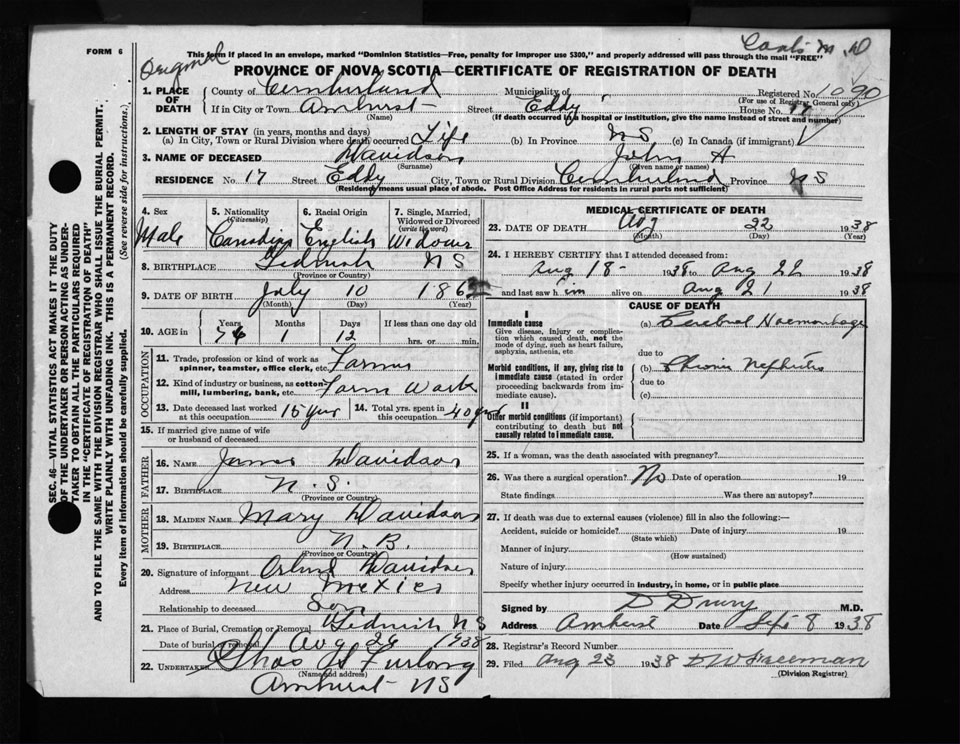 FORM 6
This form if placed in an envelope, marked "Dominion Statistics—Free, penalty for improper use $300," and properly addressed will pass through the mail "FREE"
Original
M D
PROVINCE OF NOVA SCOTIA—CERTIFICATE OF REGISTRATION OF DEATH
1. PLACE OF DEATH County of Cumberland Municipality of Registered No. 1090
(For use of Registrar General only)
If in City or Town Amherst Street Eddy House No. 17
(Name) (If death occurred in a hospital or institution, give the name instead of street and number)
2. LENGTH OF STAY (in years, months and days)
(a) In City, Town or Rural Division where death occurred Life (b) In Province NS (c) In Canada (if immigrant)
3. NAME OF DECEASED Davidson John A
(Surname) (Given name or names)
RESIDENCE No. 17 Street Eddy City, Town or Rural Division Cumberland Province NS
(Residency means usual place of abode. Post Office Address for residents in rural parts not sufficient)
4. Sex 5. Nationality (Citizenship) 6. Racial Origin 7. Single, Married, Widowed or Divorced (write the word)
Male Canadian English Widower
8. BIRTHPLACE Tidnish NS
(Province or Country)
9. DATE OF BIRTH July 10 1862
(Month) (Day) (Year)
10. AGE in Years Months Days If less than one day old
76 1 12 hrs. or min.
OCCUPATION
11. Trade, profession or kind of work as spinner, teamster, office clerk, etc. Farmer
12. Kind of industry or business, as cotton mill, lumbering, bank, etc. Farm Work
13. Date deceased last worked at this occupation 15 year 14. Total yrs. spent in this occupation 40 yrs
15. If married give name of wife or husband of deceased
FATHER
16. NAME James Davidson
17. BIRTHPLACE N. S.
(Province or Country)
MOTHER
18. MAIDEN NAME Mary Davidson
19. BIRTHPLACE N. B.
(Province or Country)
20. Signature of informant Davidson
Address New Mexico
Relationship to deceased Son
21. Place of Burial, Cremation or Removal Tidnish NS
Date of burial or removal Aug 26 1938
22. UNDERTAKER Chas A Furlong
(Name and address)
Amherst NS
MEDICAL CERTIFICATE OF DEATH
23. DATE OF DEATH Aug 22 1938
(Month) (Day) (Year)
24. I HEREBY CERTIFY that I attended deceased from:
Aug 18 1938 to Aug 22 1938
and last saw him alive on Aug 21 1938
CAUSE OF DEATH
I
Immediate cause
Give disease, injury or complication which caused death, not the mode of dying, such as heart failure, asphyxia, asthenia, etc
(a) Cerebral Haemorrhage
due to
Morbid conditions, if any, giving rise to immediate cause (stated in order proceeding backwards from immediate cause).
(b) Chronic Nephritis
due to
(c)
II
Other morbid conditions (if important) contributing to death but not causally related to immediate cause.
25. If a woman, was the death associated with pregnancy?
26. Was there a surgical operation? No Date of operation 19
State findings Was there an autopsy?
27. If death was due to external causes (violence) fill in also the following:—
Accident, suicide or homicide? Date of injury 19
(State which)
Manner of injury
(How sustained)
Nature of injury
Specify whether injury occurred in industry, in home, or in public place
Signed by D Drury M.D.
Address Amherst Date Sept 8 1938
28. Registrar's Record Number
29. Filed Aug 23 1938
(Division Registrar)
SEC. 46—VITAL STATISTICS ACT MAKES IT THE DUTY
OF THE UNDERTAKER OR PERSON ACTING AS UNDER-
TAKER TO OBTAIN ALL THE PARTICULARS REQUIRED
IN THE "CERTIFICATE OF REGISTRATION OF DEATH"
AND TO FILE THE SAME WITH THE DIVISION REGISTRAR WHO SHALL ISSUE THE BURIAL PERMIT.
WRITE PLAINLY WITH UNFADING INK. THIS IS A PERMANENT RECORD.
Every item of information should be carefully supplied. (See reverse side for instructions.)